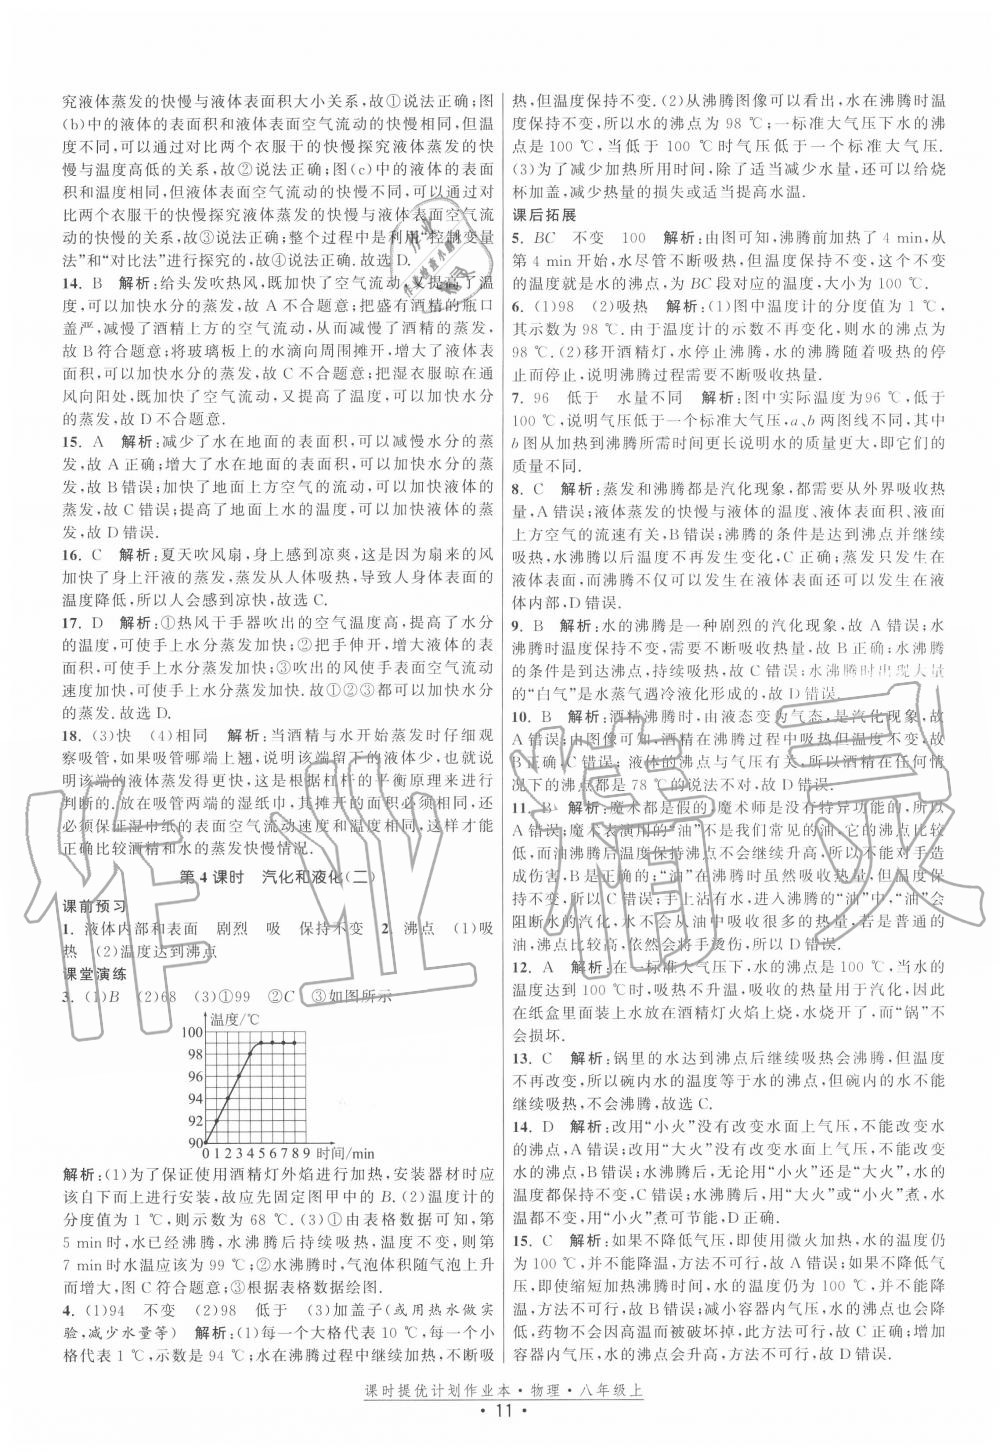 究液体蒸发的快慢与液体表面积大小关系,故①说法正确;图
(b)中的液体的表面积和液体表面空气流动的快慢相同,但温
度不同,对比两个衣服干的快慢探究液体蒸发的快
慢与温度高低的关系,故②说法正确;图(c)中的液体的表面
积和温度相同,但液体表面空气流动的快慢不同,可以通过对
比两个衣服干的快慢探究液体蒸发的快慢与液体表面空气流
动的快慢的关系,故③说法正确;整个过程中是利用“控制变量
法”和“对比法”进行探究的,故④说法正确.故选D.
14. B 解析:给头发吹热风,既加快了空气流动又提高了温
度,可以加快水分的蒸发,故 A 不合题意;把盛有酒精的瓶口
盖严,减慢了酒精上方的空气流动,从而减慢了酒精的蒸发,
故 B符合题意;将玻璃板上的水滴向周围摊开,增大了液体表
面积,可以加快水分的蒸发,故 C 不合题意;把湿衣服晾在通
风向阳处,既加快了空气流动,又提高了温度,可以加快水分
的蒸发,故 D 不合题意.
15. A 解析:减少了水在地面的表面积,可以减慢水分的蒸
发,故 A 正确;增大了水在地面的表面积,可以加快水分的蒸
发,故 B 错误;加快了地面上方空气的流动,可以加快液体的
蒸发,故 C 错误;提高了地面上水的温度,可以加快水分的蒸
发,故 D 错误.
16. C 解析:夏天吹风扇,身上感到凉爽,这是因为电扇的风
加快了身上汗液的蒸发,蒸发从人体吸热,导致人身体表面的
温度降低,所以人感到凉快,故选C.
17. D 解析:①热风干手器吹出的空气温度高,提高了水分
的温度,可使手上水分蒸发加快;②把手伸开,增大了液体的表
面积,可使手上水分蒸发加快;③吹出的风使手表面空气流动
速度加快,可使手上水分蒸发加快.故①②③都可以加快水分
的蒸发.故选D.
18. (3)快 (4)相同 解析:当酒精与水开始蒸发时仔细观
察吸管,如果吸管哪端上翘,说明该端留下的液体少,也就能
说明该端的液体蒸发得更快,这是根据杠杆的平衡原理来进行
判断的.放在吸管两端的湿纸巾,其摊开的面积必须相同,还
必须保证湿巾纸的表面空气流动速度和温度相同,这样才能
正确比较酒精和水的蒸发快慢情况.
第 4 课时 汽化和液化(二)
课前预习
1. 液体内部和表面 剧烈 吸 保持不变 2. 沸点 (1)吸
热 (2)温度达到沸点
课堂演练
3. (1)B (2)68 (3)①99 ②C ③如图所示
温度/℃
100
98
96
94
92
90
0 1 2 3 4 5 6 7 8 9 时间/min
解析:(1)为了保证使用酒精灯外焰进行加热,安装器材时应
该自下而上进行安装,故应先固定图甲中的 B. (2)温度计的
分度值为 1 ℃,则示数为 68 ℃. (3)①由表格数据可知,第
5 min时,水已经沸腾,水在沸腾过程中吸热,温度不变,则第
7 min时水温应该为 99 ℃;②水沸腾时,气泡体积随气泡上升
而增大,图 C 符合题意;③根据表格数据绘图.
4. (1)94 不变 (2)98 低于 (3)加盖子(或用热水做实
验,减少水量等) 解析:(1)每一个大格代表 10 ℃,每一个小
格代表 1 ℃,示数是 94 ℃;水在沸腾过程中继续加热,不断吸
热,但温度保持不变. (2)从沸腾图像可以看出,水在沸腾时温
度保持不变,所以水的沸点为 98 ℃;一标准大气压下水的沸
点是 100 ℃,当低于 100 ℃时气压低于一个标准大气压.
(3)为了减少加热所用时间,除了适当减少水量,还可以给烧
杯加盖,减少热量的损失或适当提高水温.
课后拓展
5. BC 不变 100 解析:由图可知,沸腾前加热了4 min,从
第 4 min开始,水尽管不断吸热,但温度保持不变,这个不变
的温度就是水的沸点,为 BC 段对应的温度,大小为 100 ℃.
6. (1)98 (2)吸热 解析:(1)图中温度计的分度值为 1 ℃,
其示数为 98 ℃.由于温度计的示数不再变化,则水的沸点为
98 ℃. (2)移开酒精灯,水停止沸腾,水的沸腾随着吸热的停
止而停止,说明沸腾过程需要不断吸收热量.
7. 96 低于 水量不同 解析:图中实际温度为96 ℃,低于
100 ℃,说明气压低于一个标准大气压,a、b 两图线不同,其中
b 图从加热到沸腾所需时间更长说明水的质量更大,即它们的
质量不同.
8. C 解析:蒸发和沸腾都是汽化现象,都需要从外界吸收热
量,A 错误;液体蒸发的快慢与液体的温度、液体表面积、液面
上方空气的流速有关,B 错误;沸腾的条件是达到沸点并继续
吸热,水沸腾以后温度不再发生变化,C 正确;蒸发只发生在
液体表面,而沸腾不仅可以发生在液体表面还可以发生在液
体内部,D 错误.
9. B 解析:水的沸腾是一种剧烈的汽化现象,故 A 错误;水
沸腾时温度保持不变,需要不断吸收热量,故 B 正确;水沸腾
的条件是达到沸点,持续吸热,故 C 错误;水沸腾时出现大量
的“白气”是水蒸气遇冷液化形成的,故 D 错误.
10. B 解析:酒精沸腾时,由液态变为气态,是汽化现象,故
A 错误;由图像可知,酒精在沸腾过程中吸热但温度不变,故
B 正确,C 错误;液体的沸点与气压有关,所以酒精在任何情
况下的沸点都是 78 ℃的说法不对,故 D 错误.
11. B 解析:魔术都是假的,魔术师是没有特异功能的,所以
A 错误;魔术表演用的“油”不是我们常见的油,它的沸点比较
低,而油沸腾后温度保持在沸点不会继续升高,所以不会造成
伤害,因此B正确;油的温度升高,手放入其中会吸收热量,所
以C错误;手上沾点水后,进入沸腾的“油”中,“油”会
阻断水的汽化,水不会从油中吸收很多的热量,若是普通的
油,沸点比较高,依然会将手烫伤,所以D错误.
12. A 解析:在一标准大气压下,水的沸点是100 ℃,当水的
温度达到 100 ℃时,吸热不升温,吸收的热量用于汽化,因此
在纸盒里面装上水放在酒精灯火焰上烧,水开了,而“锅”不
会损坏.
13. C 解析:锅里的水达到沸点后继续吸热会沸腾,但温度
不再改变,所以碗内水的温度等于水的沸点,但碗内的水不能
继续吸热,不会沸腾,故选C.
14. D 解析:改用“小火”没有改变水面上气压,不能改变水
的沸点,A 错误;改用“大火”没有改变水面上气压,不能改变
水的沸点,B 错误;水沸腾后,无论用“小火”还是“大火”,水温
都不变,C 错误;水沸腾后,用“大火”或“小火”煮,水
温都不变,用“小火”煮可节能,D 正确.
15. C 解析:如果不降低气压,即使用微火加热,水的沸点仍
为 100 ℃,并不能降低,方法不可行,故 A 错误;不改变气压,
即使缩短加热沸腾时间,水的温度仍为 100 ℃,并不能降
低,方法不可行,故 B 错误;减小容器内气压,水的沸点降
低,药物不会因高温而被破坏掉,此方法可行,故 C 正确;增加
容器内气压,水的沸点会升高,方法不可行,故 D 错误.
课时提优计划作业本·物理·八年级上
· 11 ·
作业精灵